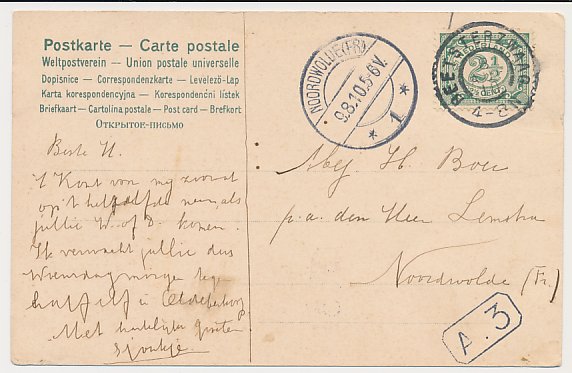 Postkarte — Carte postale
Weltpostverein — Union postale universelle
Dopisnice — Correspondenzkarte — Levelező-Lap
Karta korespondencyjna — Korespondenční lístek
Briefkaart — Cartolina postale — Post card — Brefkort
Открытое-письмо
NOORDWOLDE(FR)
9.8.10.5-6V.
1
BEETSTERZWAAG
4-8
2½
CENT
Beste H.
't Komt van mij
op 't zelfde
jullie W. of D. komen.
Ik verwacht jullie dus
Woensdagmorgen
half elf in Oldeberkoop
Met hartelijke groeten
Sjoukje.
Mej. H. Boer
p.a. den Heer Lenstra
Noordwolde (Fr.)
A.3